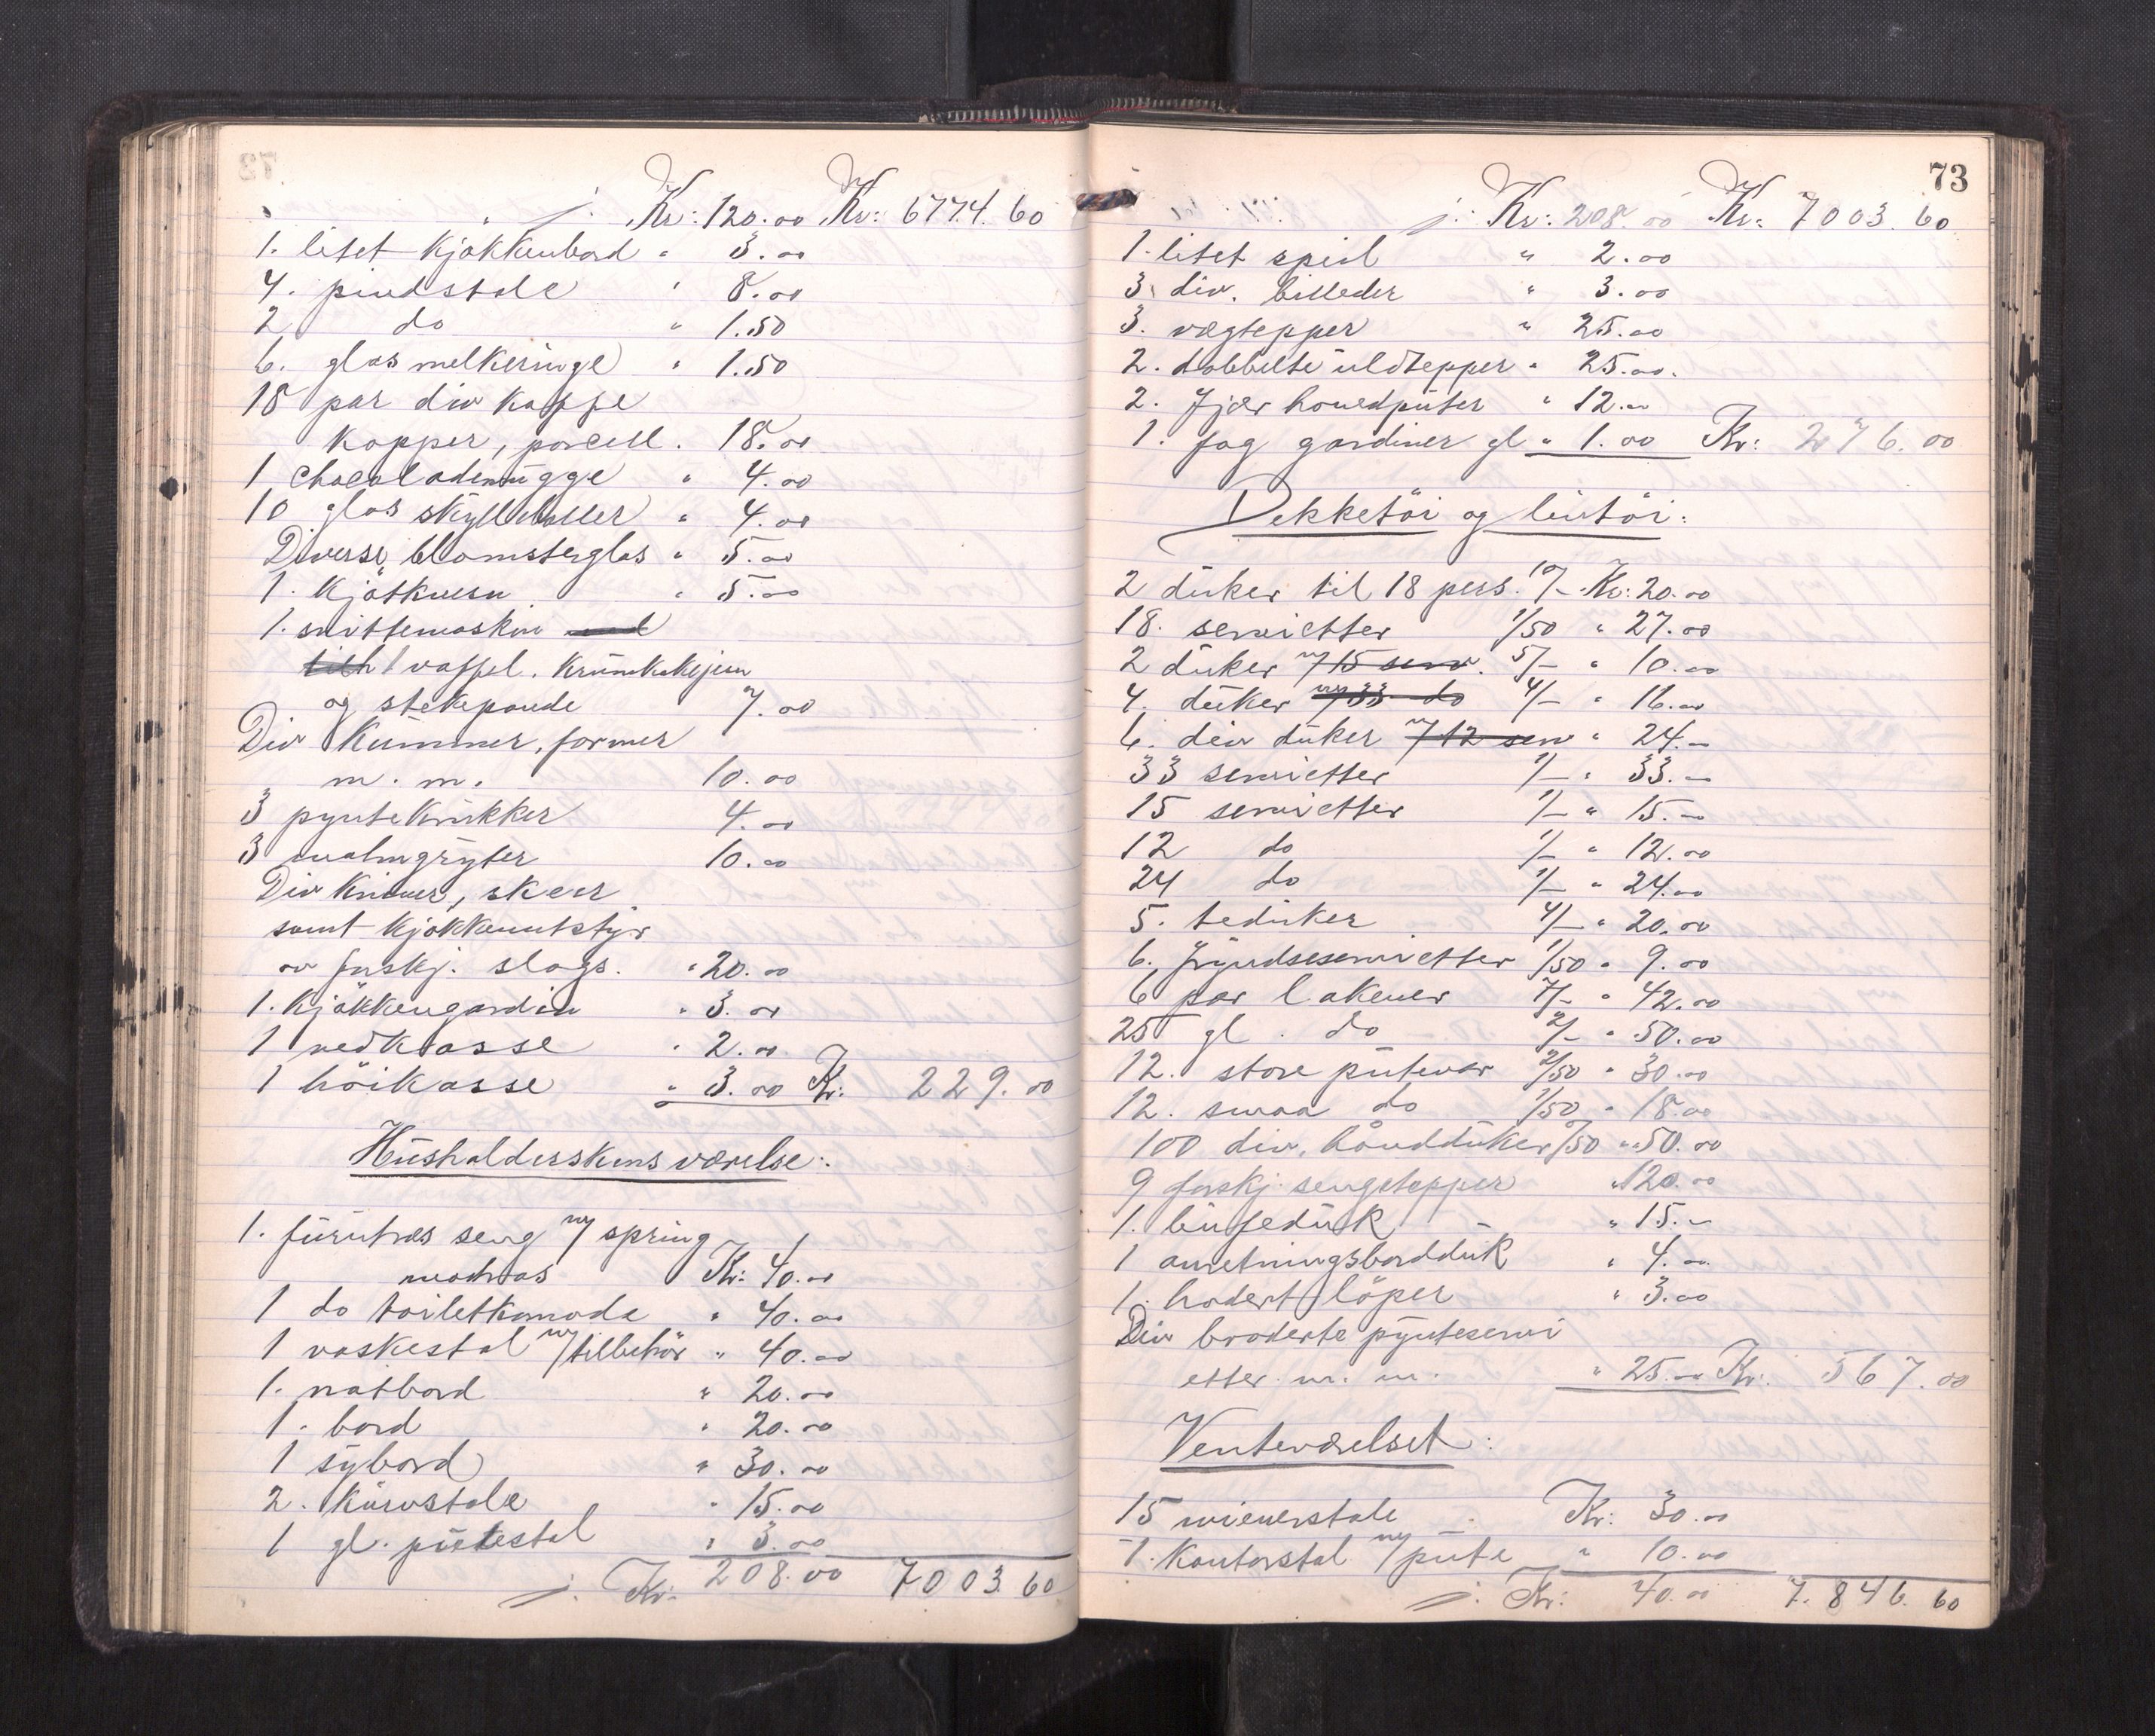 j. Kr: 120.00 Kr: 6774.60
1. litet kjøkkenbord " 3.00
4. pindstole " 8.00
2 do " 1.50
6. glas melkeringe " 1.50
18 par div kaffe
kopper, porcell. 18.00
1 chocolademugge " 4.00
10 glas skylleboller " 4.00
Diverse blomsterglas " 5.00
1. kjötkvern " 5.00
1. snittemaskin med
1 vaffel. Krumkakejern
og stekepande 7.00
Div Kummer, former
m. m. 10.00
3 pyntekrukker 4.00
3 malmgryter 10.00
Div Kniver, skeer
samt kjøkkenutstyr
av forskj. slags. " 20.00
1. kjøkkengardin " 3.00
1 vedkasse " 2.00
1 höikasse " 3.00 Kr: 229.00
Husholderskens værelse:
1. furutræs seng m/ spring
madras Kr: 40.00
1 do toiletkomode " 40.00
1 vaskestol m/tilbehör " 40.00
1. natbord " 20.00
1. bord " 20.00
1 sybord " 30.00
2. Kurvstole " 15.00
1 gl. putestol " 3.00
j. Kr: 208.00 7003.60
73
j. Kr: 208.00 Kr: 7003.60
1. litet speil " 2.00
3 div. billeder " 3.00
3. vægtepper " 25.00
2. dobbelte uldtepper " 25.00.
2. Fjær hovedputer " 12.00
1. fag gardiner gl " 1.00 Kr: 276.00
Dekketöi og lintöi:
2 duker til 18 pers. 10/- Kr: 20.00
18. servietter 1/50 " 27.00
2 duker m/15 serv. 5/- " 10.00
4. duker m/33 do 4/- " 16.00
6. div duker m/12 serv " 24.–
33 servietter 1/- " 33.–
15 servietter 1/- " 15.–
12 do 1/- " 12.00
24 do 1/- " 24.00
5. teduker 4/- " 20.00
6. fryndseservietter 1/50 " 9.00
6 par lakener 7/- " 42.00
25 gl. do 2/- " 50.00
12. store putevar 2/50 " 30.00
12. smaa do 1/50 " 18.00
100 div. håndduker /50 " 50.00
9 forskj. sengetepper " 120.00
1. buffeduk " 15.–
1 anretningsbordduk " 4.00
1. brodert löper " 3.00
Div broderte pynteservi
etter m. m. " 25.00 Kr. 567.00
Venteværelset:
15 wienerstole Kr: 30.00
1. Kontorstol m/ pute " 10.00
j. Kr: 40.00 7.846.60